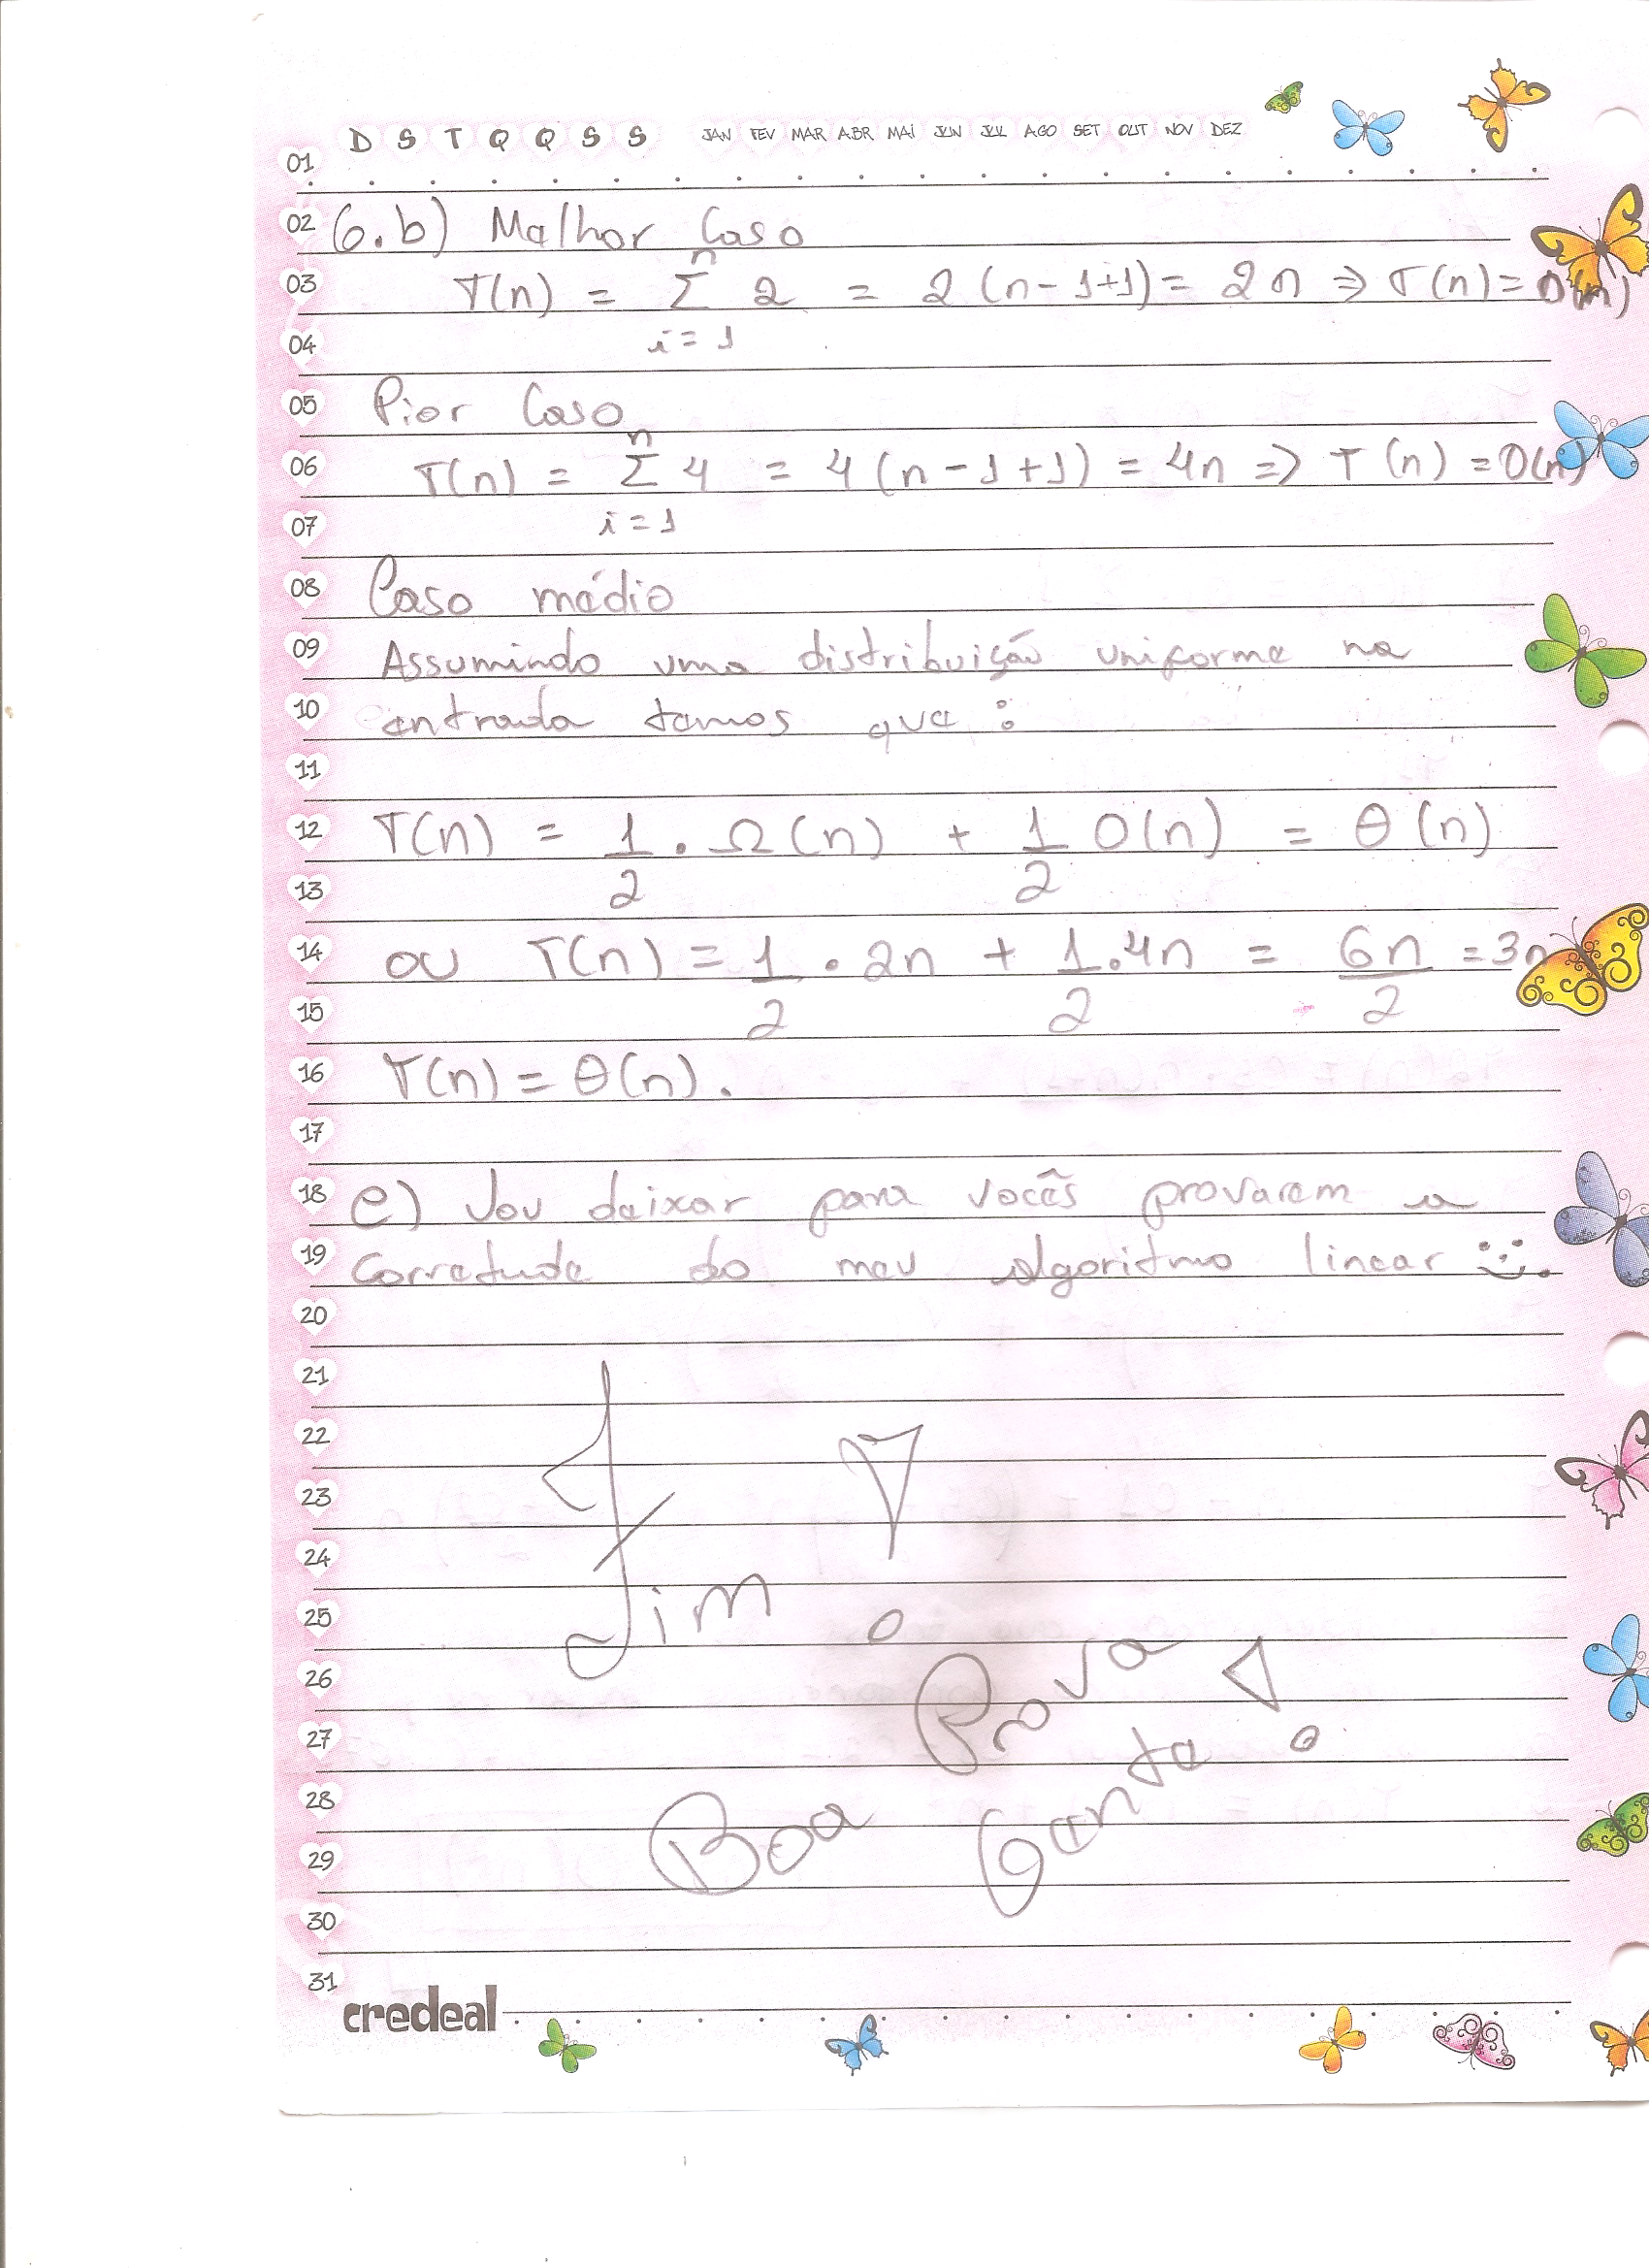 D S T Q Q S S JAN FEV MAR ABR MAI JUN JUL AGO SET OUT NOV DEZ
01
02 6.b) Melhor Caso
03 T(n) = n Σ i=1 2 = 2(n-1+1) = 2n ⇒ T(n)=
04
05 Pior Caso
06 T(n) = n Σ i=1 4 = 4(n-1+1) = 4n => T(n) = O(n)
07
08 Caso médio
09 Assumindo uma distribuição uniforme na
10 entrada temos que:
11
12 T(n) = 1/2 . Ω(n) + 1/2 O(n) = θ(n)
13
14 ou T(n) = 1/2 . 2n + 1/2 . 4n = 6n/2 = 3n
15
16 T(n) = θ(n).
17
18 e) Vou deixar para vocês provarem a
19 corretude do meu algoritmo linear :).
20
21
22
23
24
25 Fim!
26
27 Boa Prova
28 Gente!
29
30
31
credeal